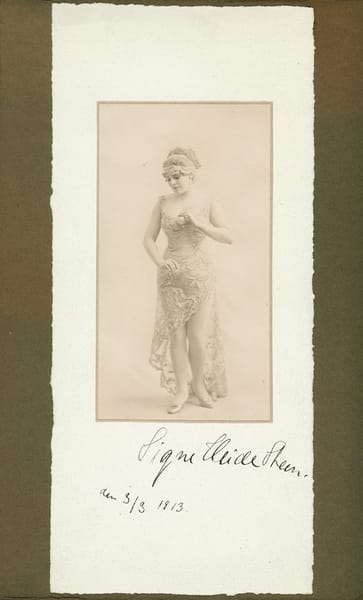 Signe Heide Steen.
den 3/3 1913.